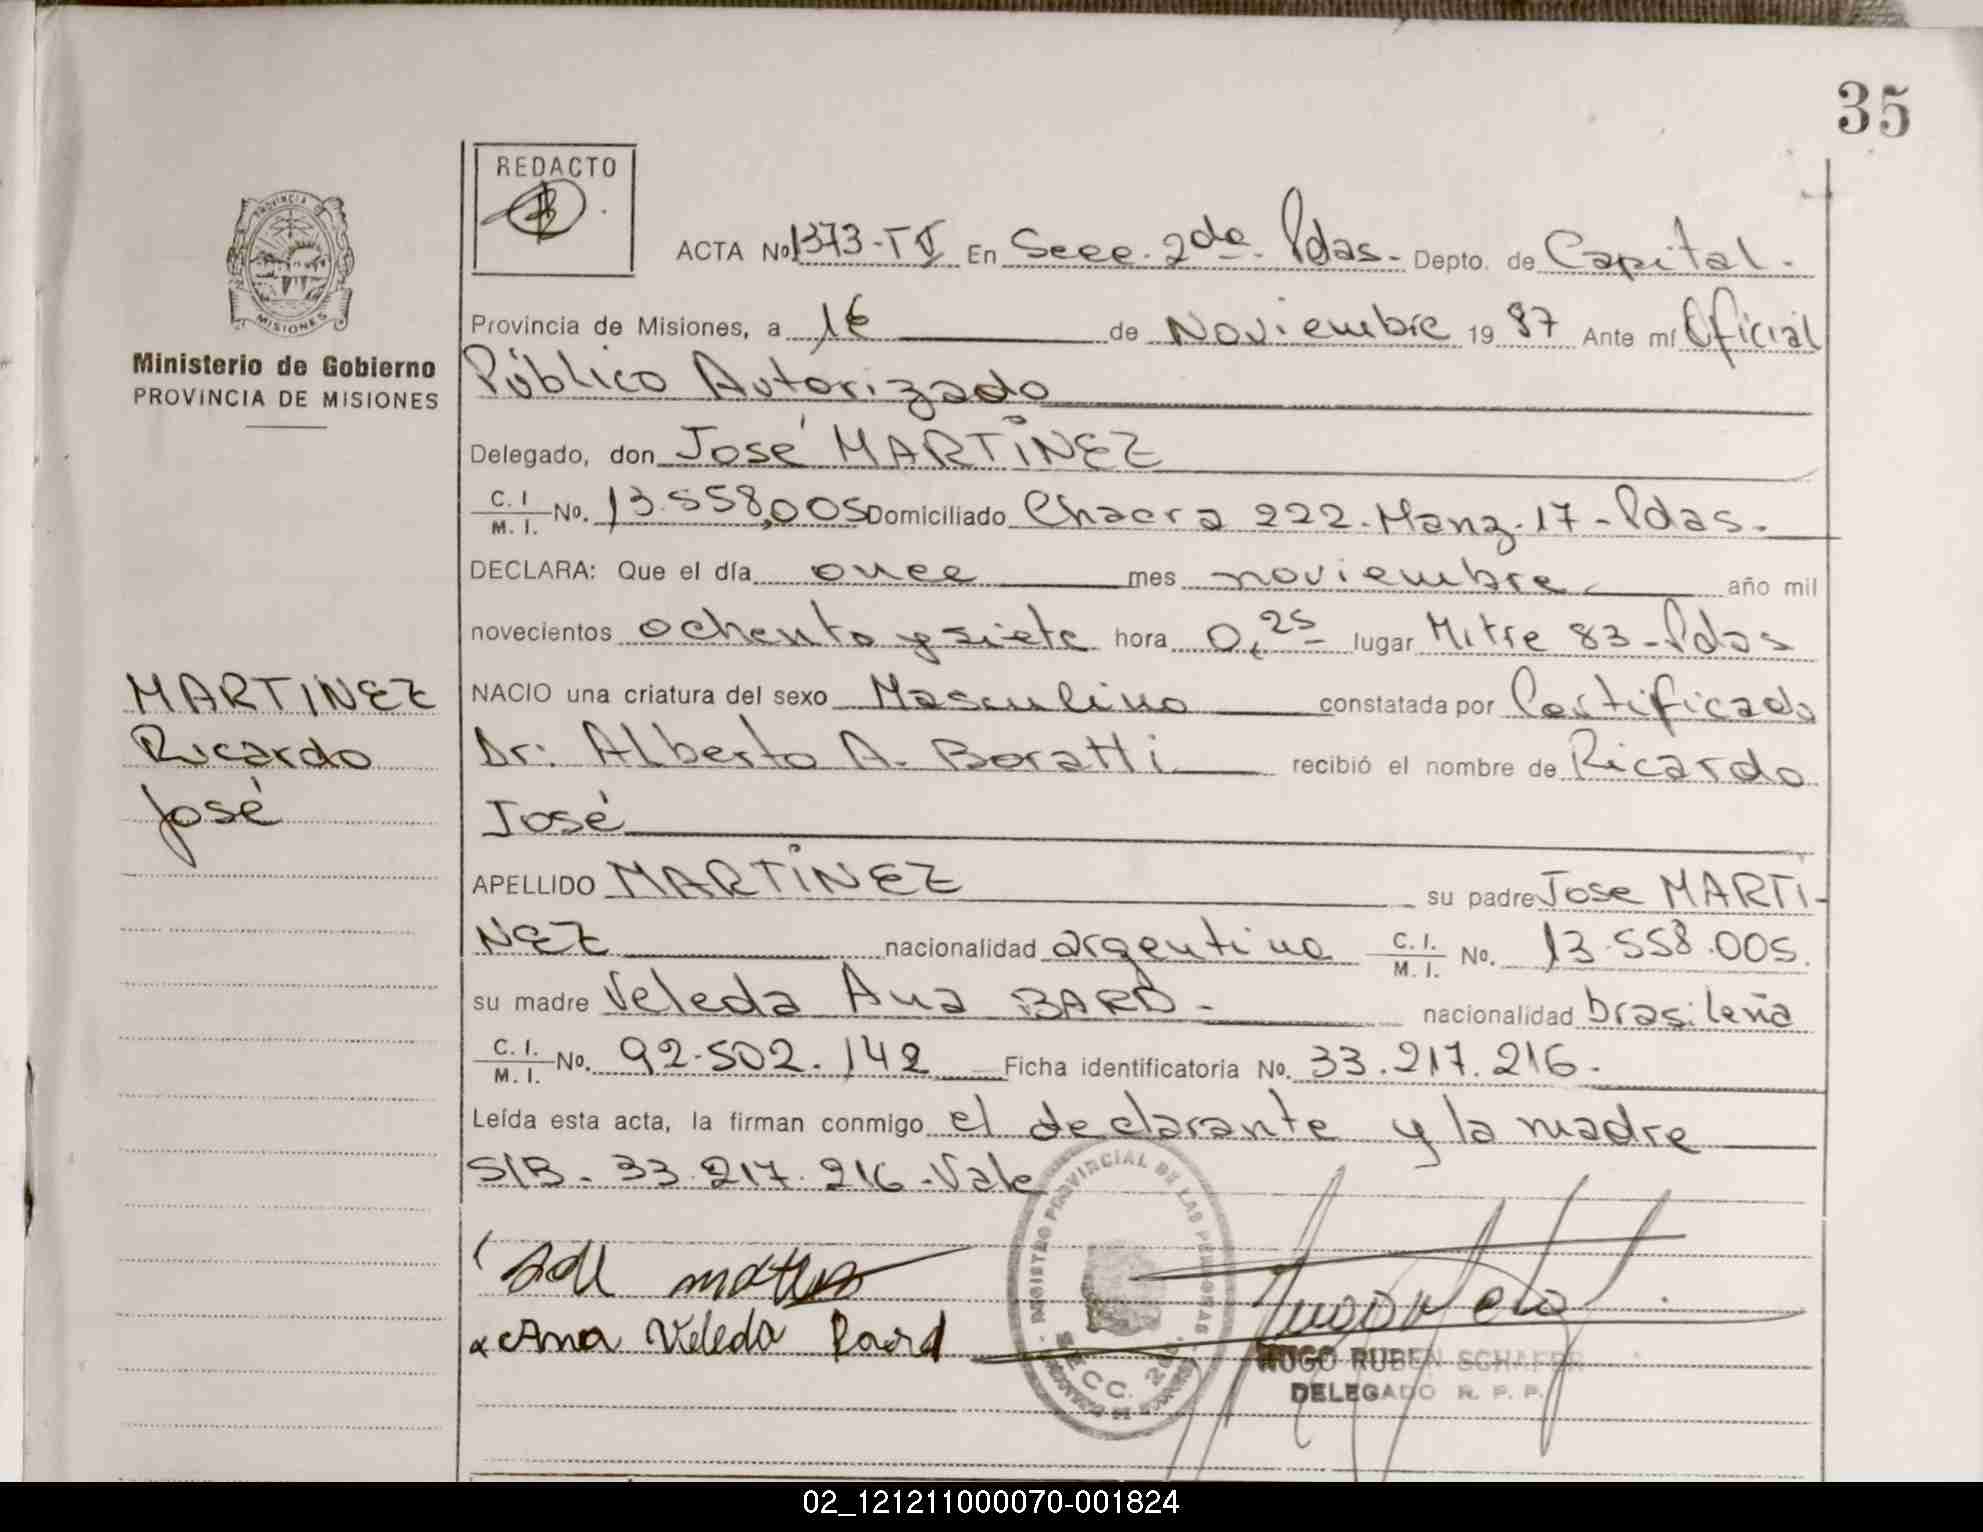 35
REDACTO
ACTA No 1373-TV En Secc. 2da. Pdas. Depto. de Capital.
PROVINCIA DE
MISIONES
Provincia de Misiones, a 16 de Noviembre 1987 Ante mí Oficial
Ministerio de Gobierno
PROVINCIA DE MISIONES
Público Autorizado
Delegado, don José MARTINEZ
C. I. M. I. No. 13.558,005 Domiciliado Chacra 222. Manz. 17 - Pdas.
DECLARA: Que el día once mes noviembre año mil
novecientos ochenta y siete hora 0,25 lugar Mitre 83 - Pdas
MARTINEZ
Ricardo
José
NACIO una criatura del sexo Masculino constatada por Certificado
Dr: Alberto A. Boratti recibió el nombre de Ricardo
José
APELLIDO MARTINEZ su padre Jose MARTI-
NEZ nacionalidad argentino C. I. M. I. No. 13.558.005.
su madre Veleda Ana BARD - nacionalidad brasileña
C. I. M. I. No. 92.502.142 Ficha identificatoria No. 33.217.216.
Leída esta acta, la firman conmigo el declarante y la madre
S/B. 33.217.216. Vale
Ana Veleda Bard
REGISTRO PROVINCIAL DE LAS PERSONAS
SECC. 2da.
HUGO RUBEN SCHAFER
DELEGADO R. P. P.
02_121211000070-001824